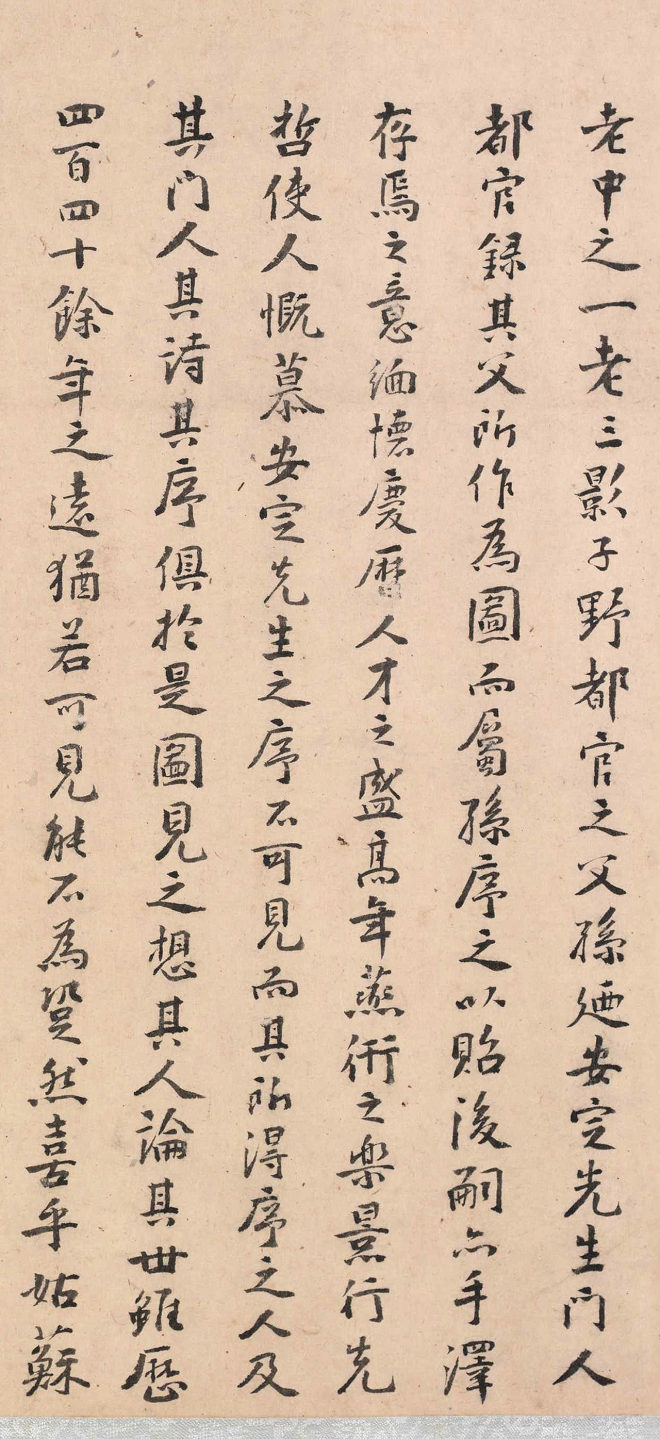 老中之一老三影子野都官之父孫廼安定先生門人
都官録其父所作為圖而屬孫序之以貽後嗣亦手澤
存焉之意緬懷慶曆人才之盛高年燕衎之樂景行先
哲使人慨慕安定先生之序不可見而其所得序之人及
其門人其詩其序俱於是圖見之想其人論其世雖歷
四百四十餘年之遠猶若可見能不為跫然喜乎姑蘇